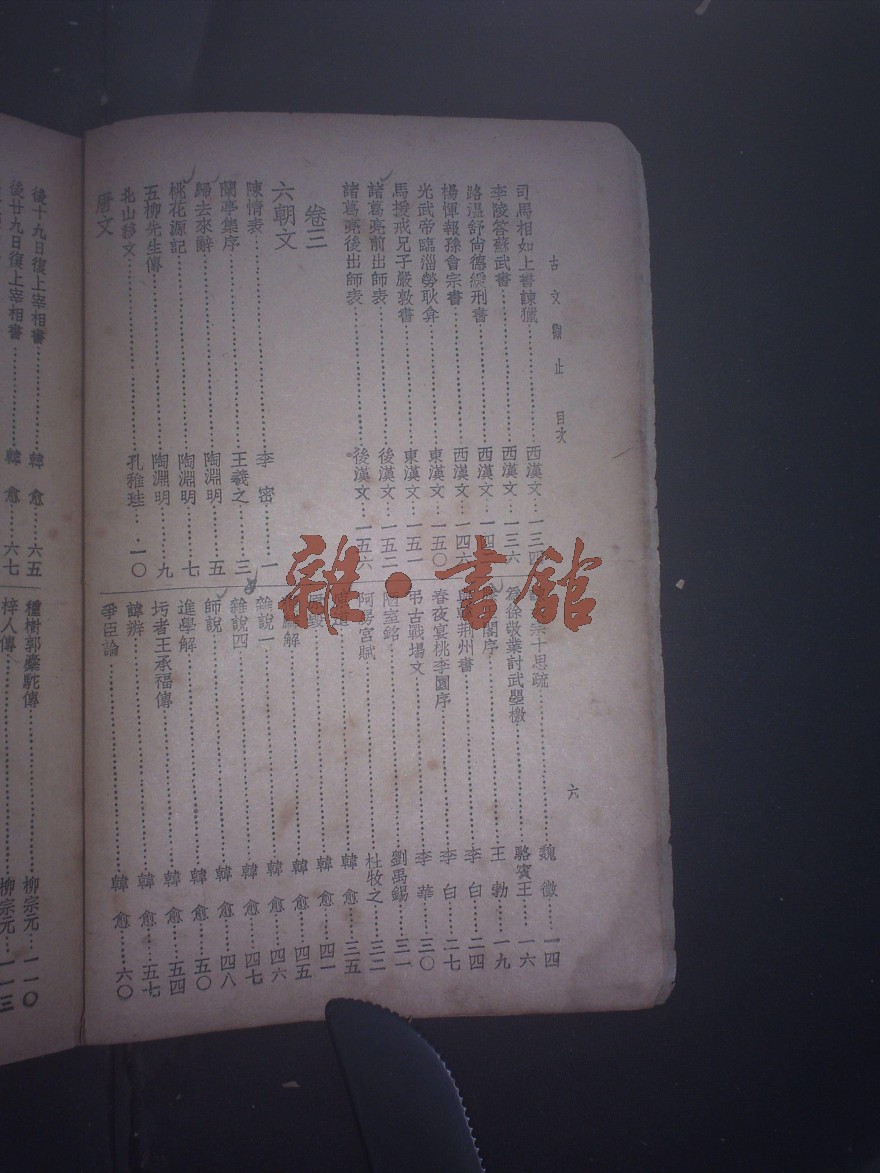 古文觀止 目次 六
司馬相如上書諫獵 西漢文 一三四
李陵答蘇武書 西漢文 一三六
路溫舒尚德緩刑書 西漢文 一四
楊惲報孫會宗書 西漢文 一四六
光武帝臨淄勞耿弇 東漢文 一五〇
馬援戒兄子嚴敦書 東漢文 一五一
諸葛亮前出師表 後漢文 一五二
諸葛亮後出師表 後漢文 一五六
卷三
六朝文
陳情表 李密 一
蘭亭集序 王羲之 三
歸去來辭 陶淵明 五
桃花源記 陶淵明 七
五柳先生傳 陶淵明 九
北山移文 孔稚珪 一〇
唐文
十思疏 魏徵 一四
為徐敬業討武曌檄 駱賓王 一六
閣序 王勃 一九
荊州書 李白 二四
春夜宴桃李園序 李白 二七
弔古戰場文 李華 三〇
陋室銘 劉禹錫 三一
阿房宮賦 杜牧之 三二
道 韓愈 三五
毀 韓愈 四一
解 韓愈 四五
雜說一 韓愈 四六
雜說四 韓愈 四七
師說 韓愈 四八
進學解 韓愈 五〇
圬者王承福傳 韓愈 五四
諱辨 韓愈 五七
爭臣論 韓愈 六〇
後十九日復上宰相書 韓愈 六五
後廿九日復上宰相書 韓愈 六七
種樹郭橐駝傳 柳宗元 一一〇
梓人傳 柳宗元 一一三
雜·書館